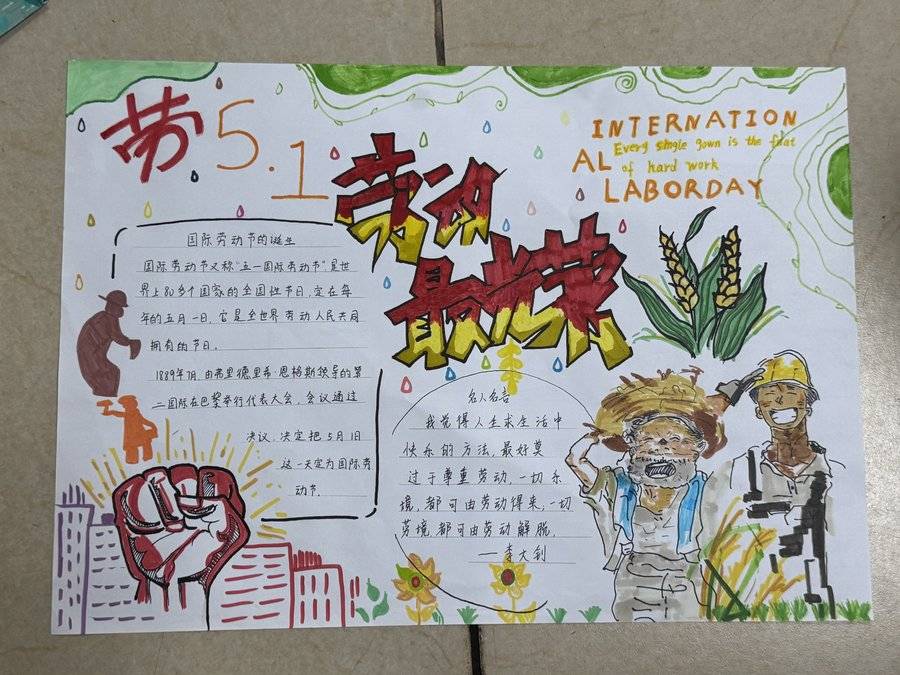 劳 5.1
劳动
最光荣
INTERNATION
AL
Every single gown is the fruat
of hard work
LABORDAY
国际劳动节的诞生
国际劳动节又称“五一国际劳动节”是世
界上80多个国家的全国性节日,定在每
年的五月一日,它是全世界劳动人民共同
拥有的节日。
1889年7月,由弗里德里希·恩格斯领导的第
二国际在巴黎举行代表大会,会议通过
决议,决定把5月1日
这一天定为国际劳
动节.
名人名言
我觉得人生求生活中
快乐的方法,最好莫
过于尊重劳动,一切乐
境,都可由劳动得来,一切
劳境都可由劳动解脱.
——李大钊